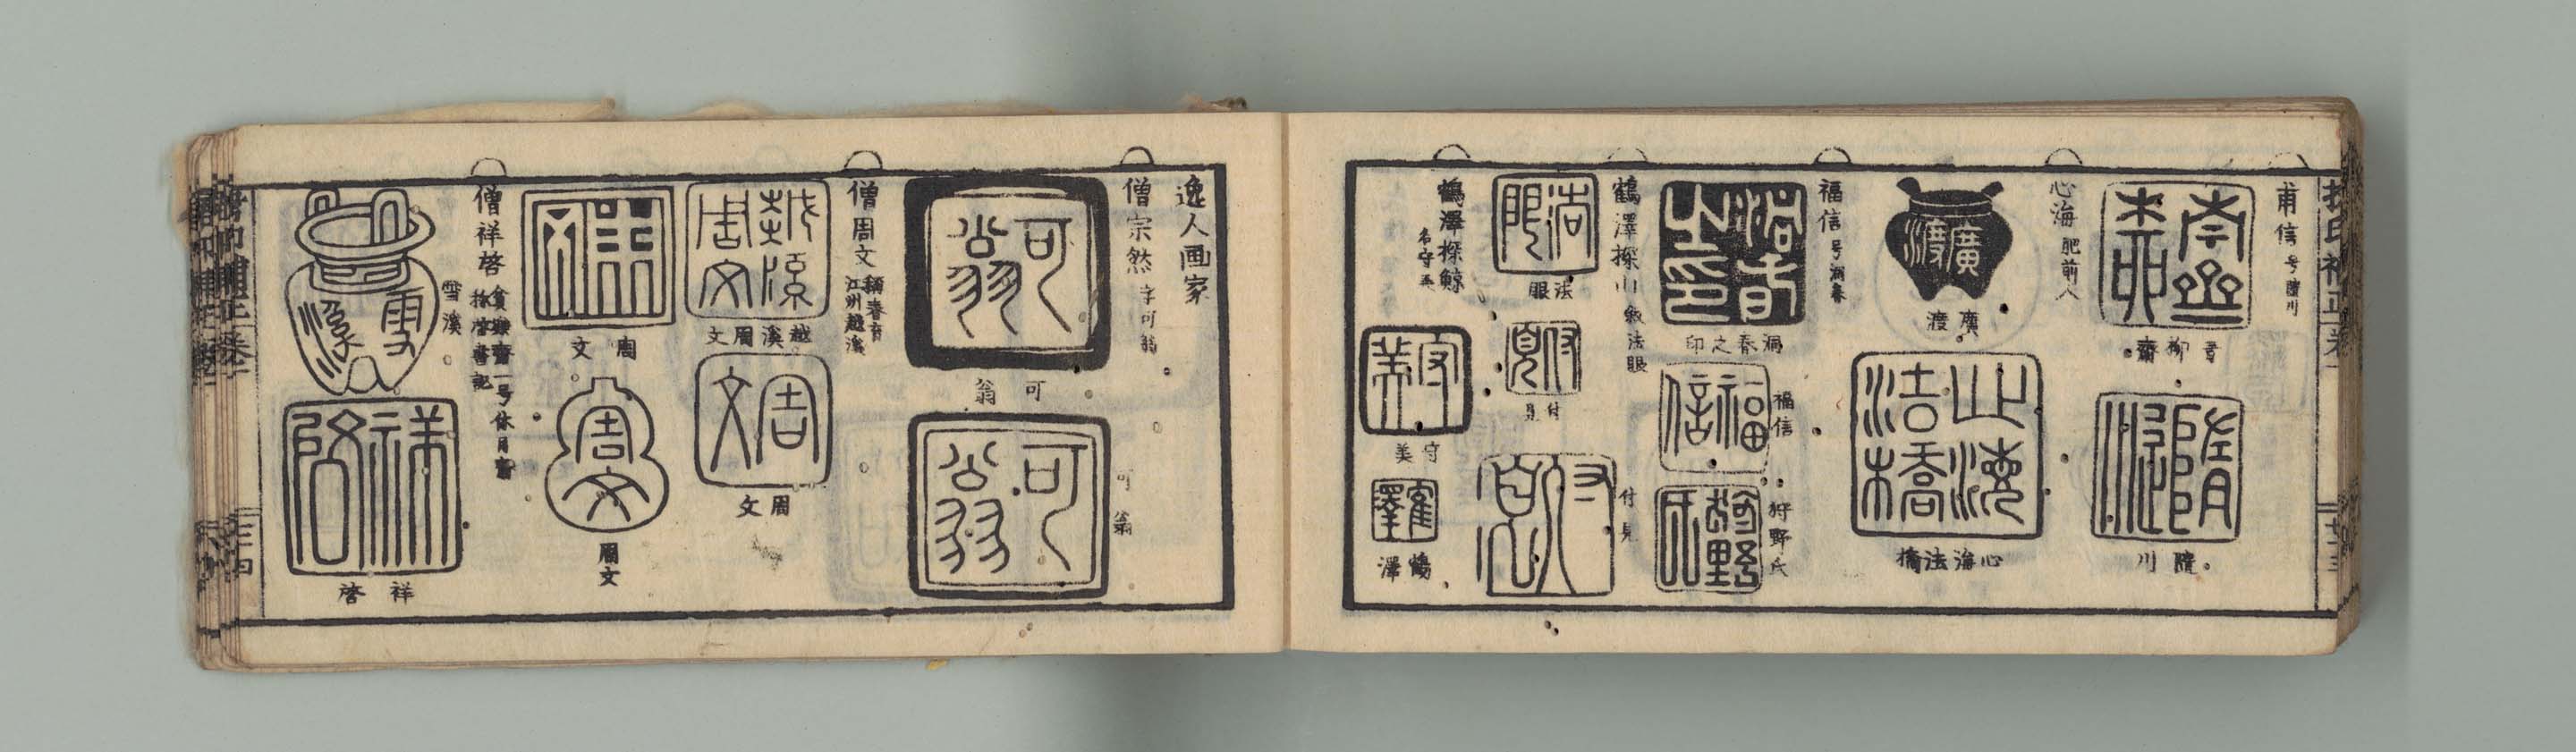 甫信 号隨川
壽柳齋
隨川
心海 肥前人
廣渡
心海法橋
福信 号洞春
洞春之印
福信
狩野氏
鶴澤探山 叙法眼
法眼
付見
付見
鶴澤探鯨
守美
鶴澤
逸人画家
僧宗然 字可翁
可翁
可翁
僧周文
江州越溪
越溪周文
周文
周文
周文
僧祥啓
一号休月齋
啓書記
雪溪
祥啓